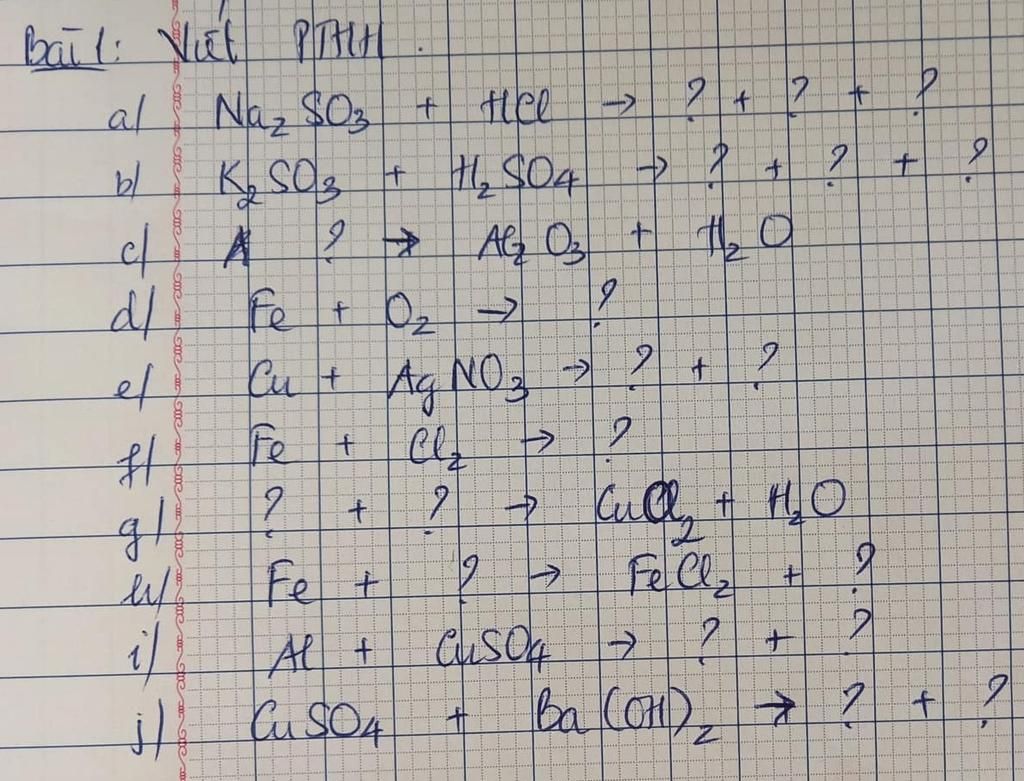 Bài 1: Viết PTHH.
a/ Na₂SO₃ + HCl → ? + ? + ?
b/ K₂SO₃ + H₂SO₄ → ? + ? + ?
c/ ? → Al₂O₃ + H₂O
d/ Fe + O₂ → ?
e/ Cu + AgNO₃ → ? + ?
f/ Fe + Cl₂ → ?
g/ ? + ? → CuCl₂ + H₂O
h/ Fe + ? → FeCl₂ + ?
i/ Al + CuSO₄ → ? + ?
j/ CuSO₄ + Ba(OH)₂ → ? + ?